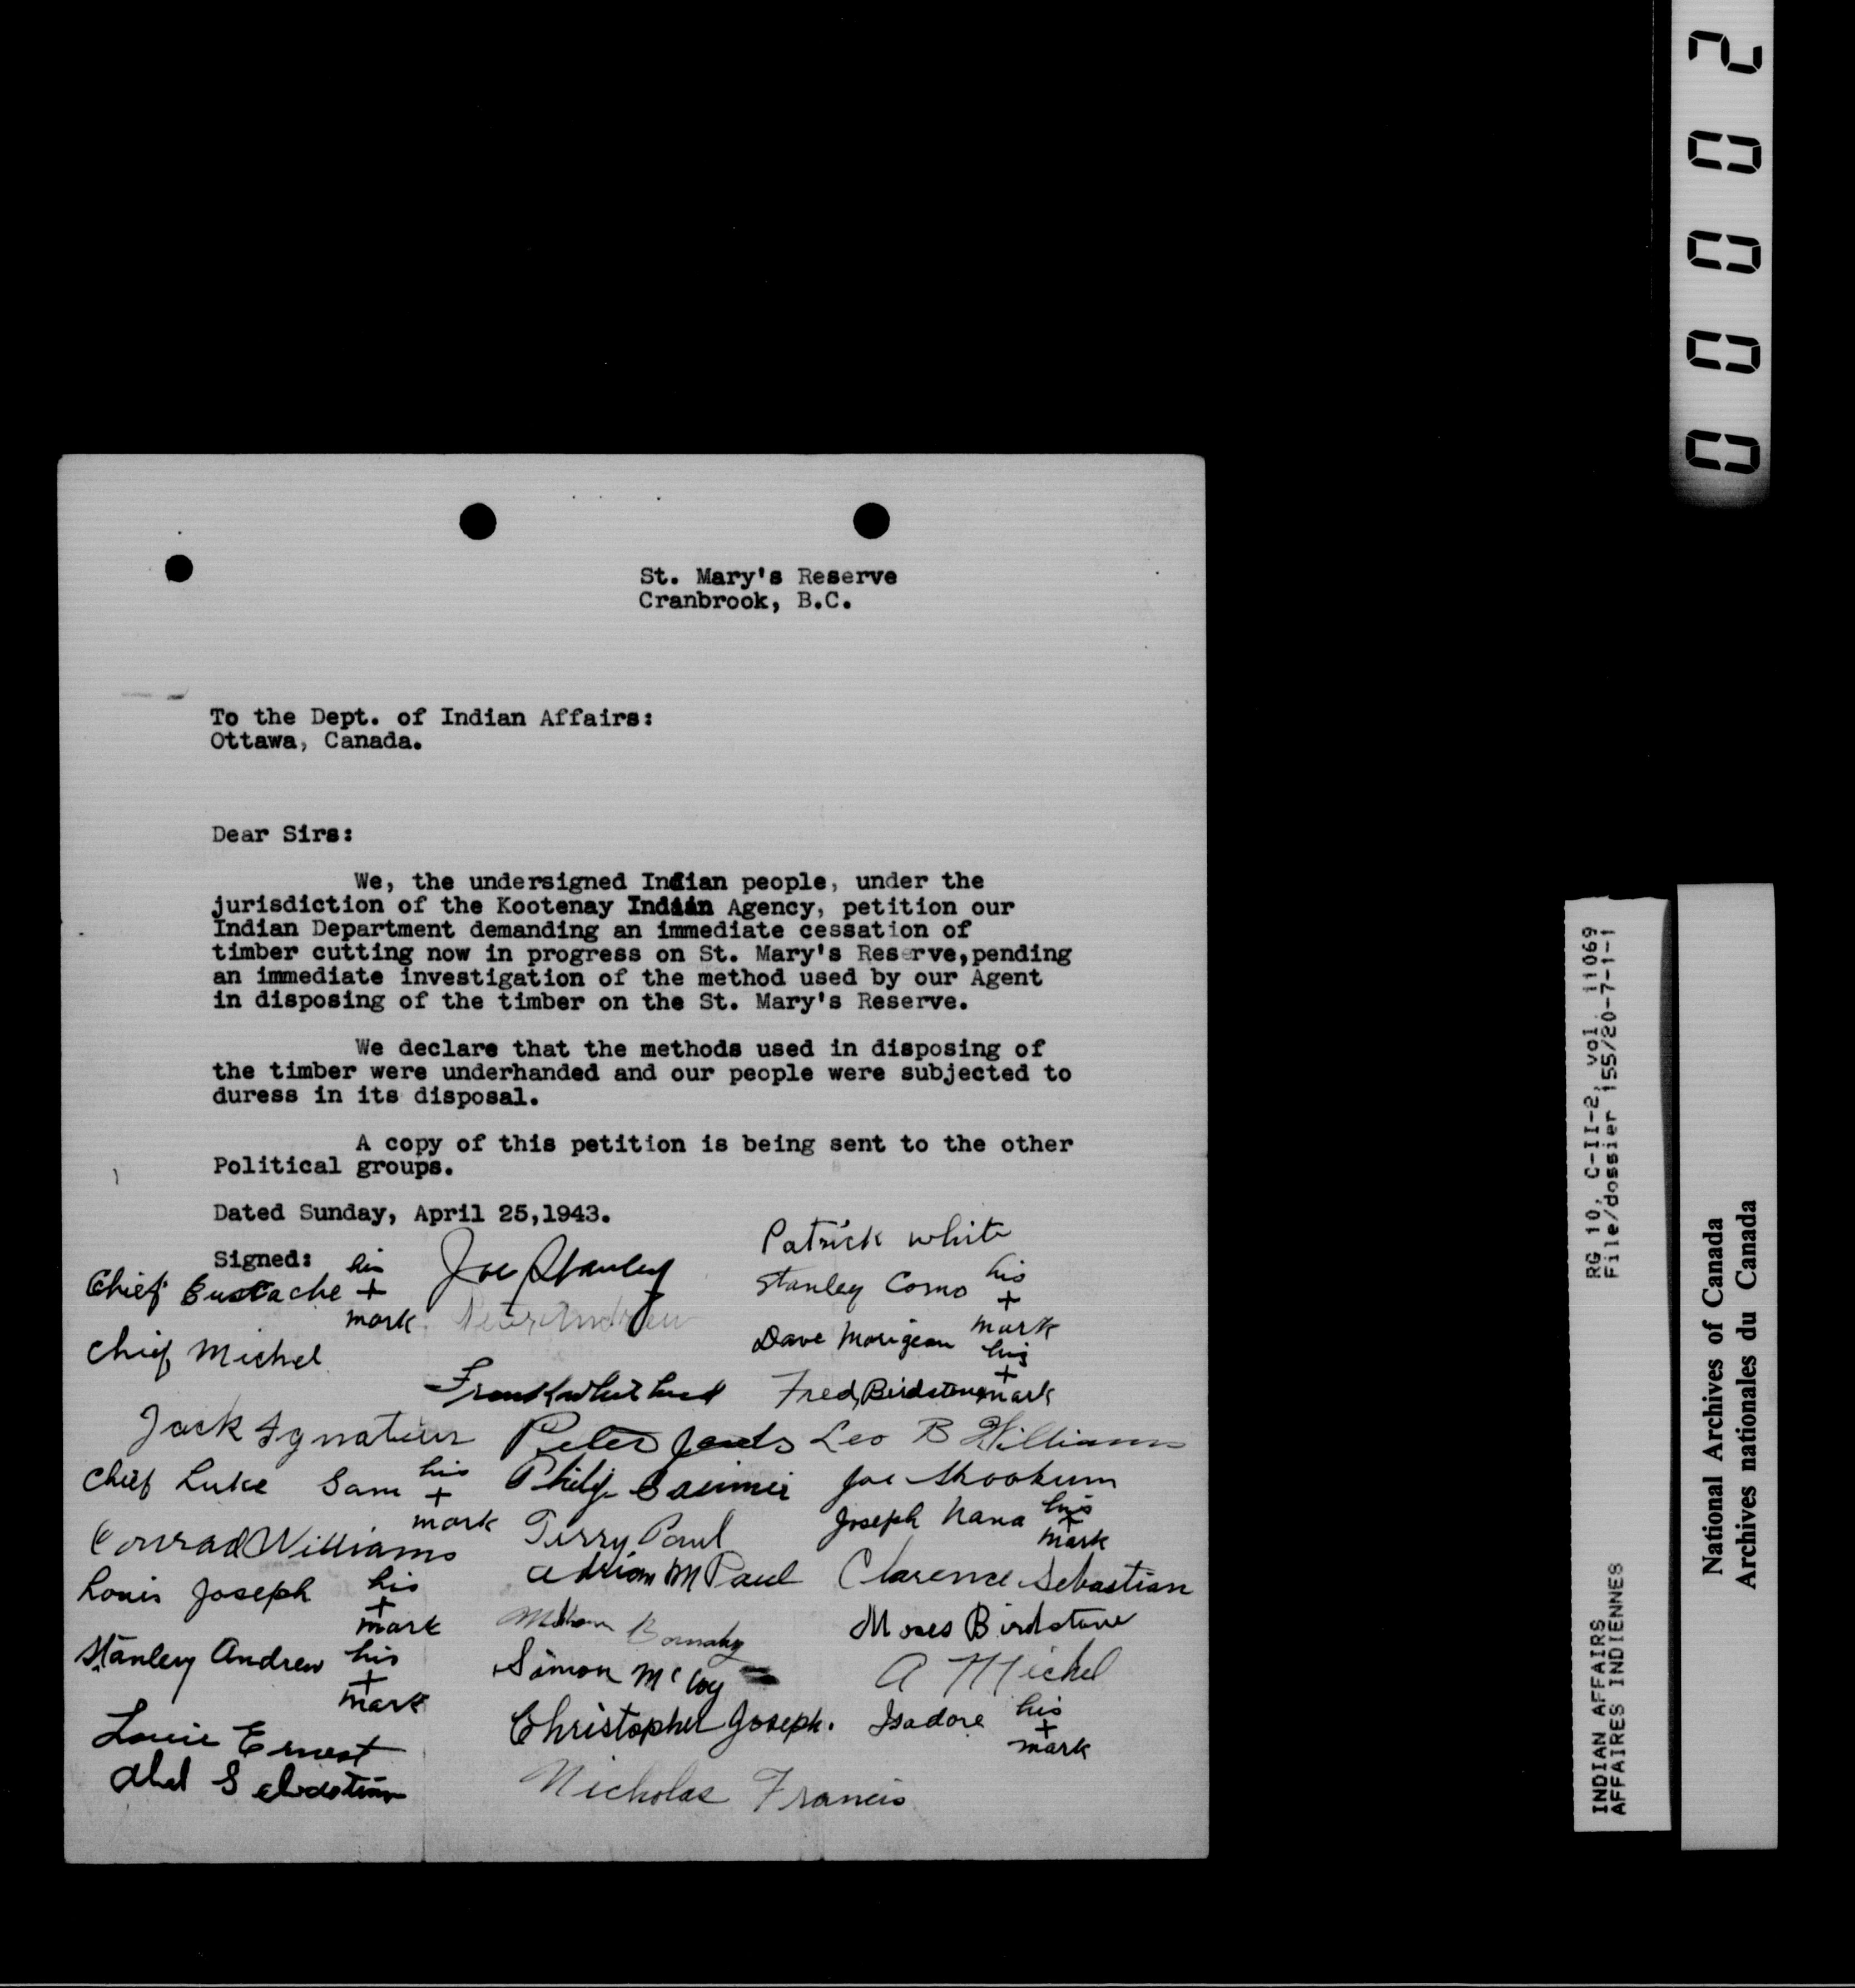 St. Mary's Reserve
Cranbrook, B.C.
To the Dept. of Indian Affairs:
Ottawa, Canada.
Dear Sirs:
We, the undersigned Indian people, under the
jurisdiction of the Kootenay Indian Agency, petition our
Indian Department demanding an immediate cessation of
timber cutting now in progress on St. Mary's Reserve,pending
an immediate investigation of the method used by our Agent
in disposing of the timber on the St. Mary's Reserve.
We declare that the methods used in disposing of
the timber were underhanded and our people were subjected to
duress in its disposal.
A copy of this petition is being sent to the other
Political groups.
Dated Sunday, April 25,1943.
Signed:
Chief Eustache his + mark
Chief Michel
Jack Ignatius
Chief Luke Sam his + mark
Conrad Williams
Louis Joseph his + mark
Stanley Andrew his + mark
Louie Ernest
Abel Sebastian
Joe Stanley
Peter Andrew
Frank Whitehead
Peter
Philip Casimir
Terry Paul
Adrian M Paul
Simon McCoy
Christopher Joseph.
Nicholas Francis
Patrick White
Stanley Como his + mark
Dave Morigeau his + mark
Fred Birdstone
Leo B Williams
Joe Skookum
Joseph Nana his + mark
Clarence Sebastian
Moses Birdstone
A Michel
Isadore his + mark
00002
RG 10, C-II-2, vol. 11069
File/dossier 155/20-7-1-1
INDIAN AFFAIRS
AFFAIRES INDIENNES
National Archives of Canada
Archives nationales du Canada